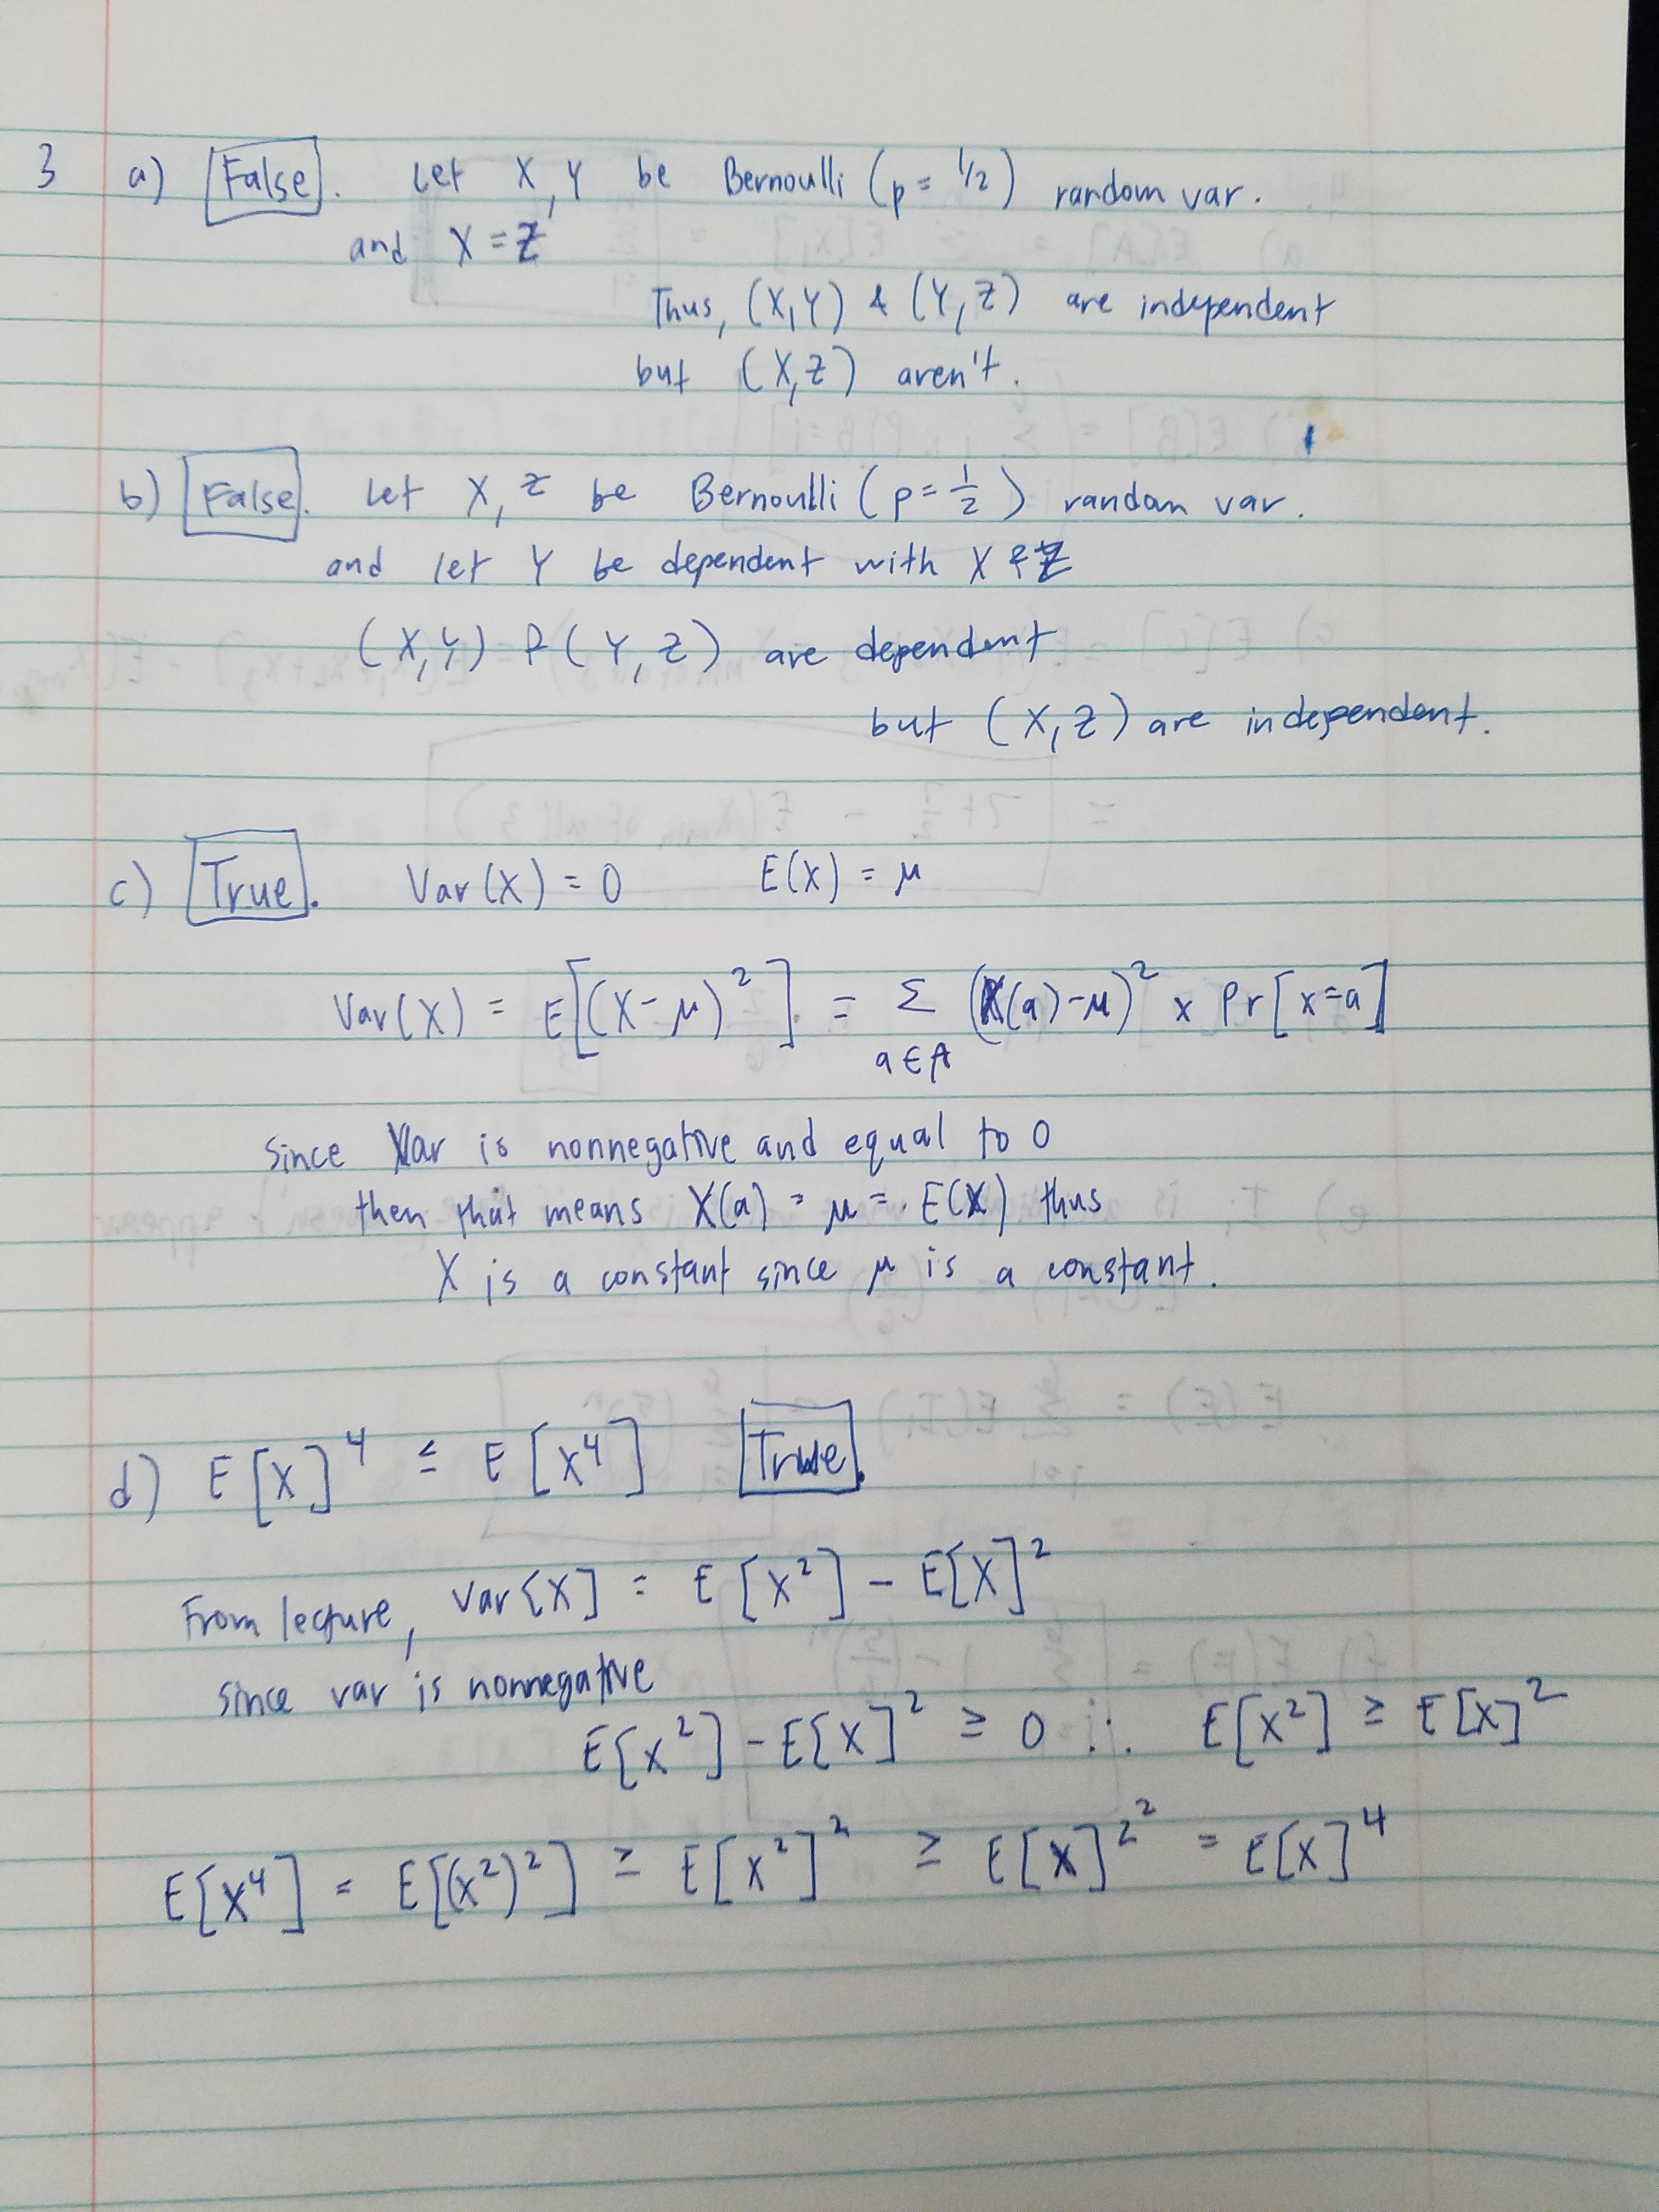 3 a) False. Let X, Y be Bernoulli (p = 1/2) random var.
and X = Z
Thus, (X,Y) & (Y,Z) are independent
but (X,Z) aren't.
b) False. Let X, Z be Bernoulli (p = 1/2) random var.
and let Y be dependent with X & Z
(X,Y) & (Y,Z) are dependent
but (X,Z) are independent.
c) True. Var(X) = 0 E(X) = μ
Var(X) = E[(X-μ)²] = Σ (X(a)-μ)² x Pr[x=a]
a∈A
Since Var is nonnegative and equal to 0
then that means X(a) = μ = E(X) thus
X is a constant since μ is a constant.
d) E[X]⁴ ≤ E[X⁴] True.
From lecture, Var[X] = E[X²] - E[X]²
since var is nonnegative
E[X²] - E[X]² ≥ 0 ∴ E[X²] ≥ E[X]²
E[X⁴] = E[(X²)²] ≥ E[X²]² ≥ E[X]²² = E[X]⁴